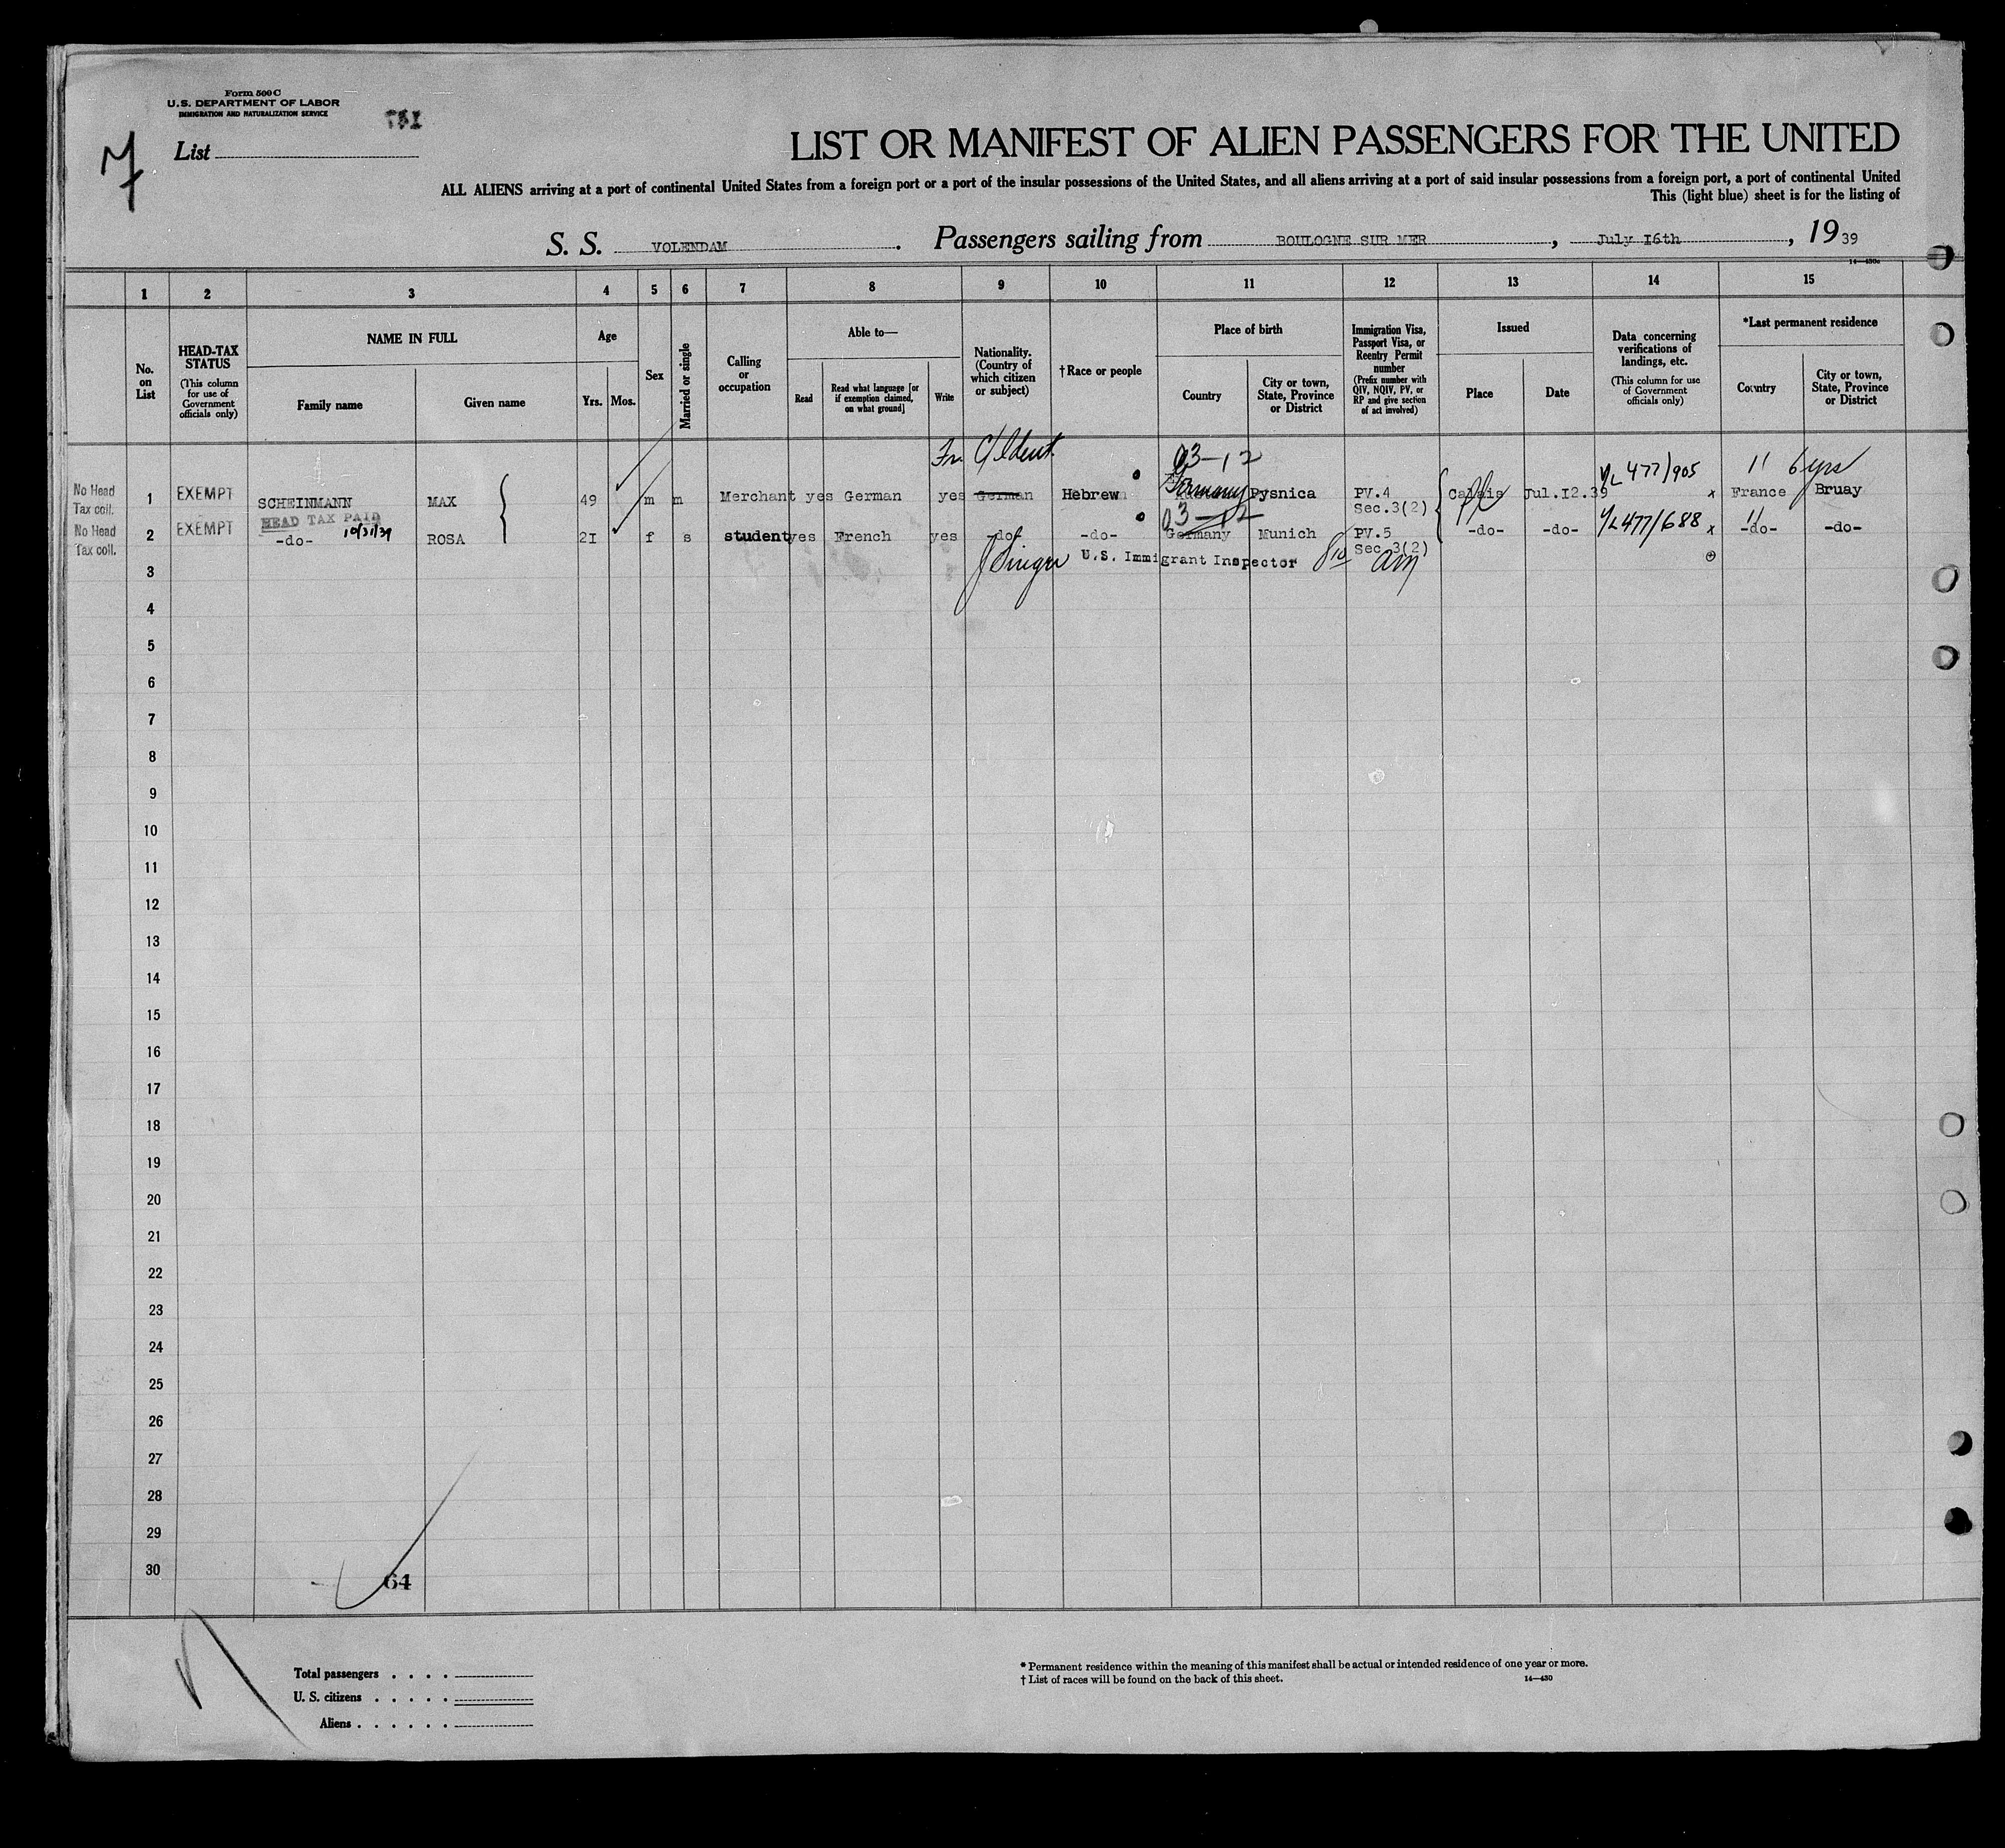 Form 500 C
U.S. DEPARTMENT OF LABOR
IMMIGRATION AND NATURALIZATION SERVICE
List
7
LIST OR MANIFEST OF ALIEN PASSENGERS FOR THE UNITED
ALL ALIENS arriving at a port of continental United States from a foreign port or a port of the insular possessions of the United States, and all aliens arriving at a port of said insular possessions from a foreign port, a port of continental United
This (light blue) sheet is for the listing of
S. S. VOLENDAM . Passengers sailing from BOULOGNE SUR MER , July 16th , 19 39
14—430a
1 2 3 4 5 6 7 8 9 10 11 12 13 14 15
No. on List
HEAD-TAX STATUS (This column for use of Government officials only)
NAME IN FULL
Family name Given name
Age
Yrs. Mos.
Sex
Married or single
Calling or occupation
Able to—
Read
Read what language [or if exemption claimed, on what ground]
Write
Nationality. (Country of which citizen or subject)
† Race or people
Place of birth
Country
City or town, State, Province or District
Immigration Visa, Passport Visa, or Reentry Permit number (Prefix number with QIV, NQIV, PV, or RP and give section of act involved)
Issued
Place Date
Data concerning verifications of landings, etc. (This column for use of Government officials only)
*Last permanent residence
Country
City or town, State, Province or District
Fr.
03-12
V/L 477/905
11 6 yrs
No Head Tax coll. 1 EXEMPT SCHEINMANN MAX 49 m m Merchant yes German yes German Hebrew Germany Pysnica PV.4 Sec.3(2) Calais Jul.12.39 x France Bruay
HEAD TAX PAID 10/31/39
03-12
V/L 477/688
11
No Head Tax coll. 2 EXEMPT -do- ROSA 21 f s student yes French yes -do- -do- Germany Munich PV.5 Sec.3(2) -do- -do- x -do- -do-
3 U.S. Immigrant Inspector
4
5
6
7
8
9
10
11
12
13
14
15
16
17
18
19
20
21
22
23
24
25
26
27
28
29
30
64
Total passengers . . . .
U. S. citizens . . . . .
Aliens . . . . . .
* Permanent residence within the meaning of this manifest shall be actual or intended residence of one year or more.
† List of races will be found on the back of this sheet.
14—430